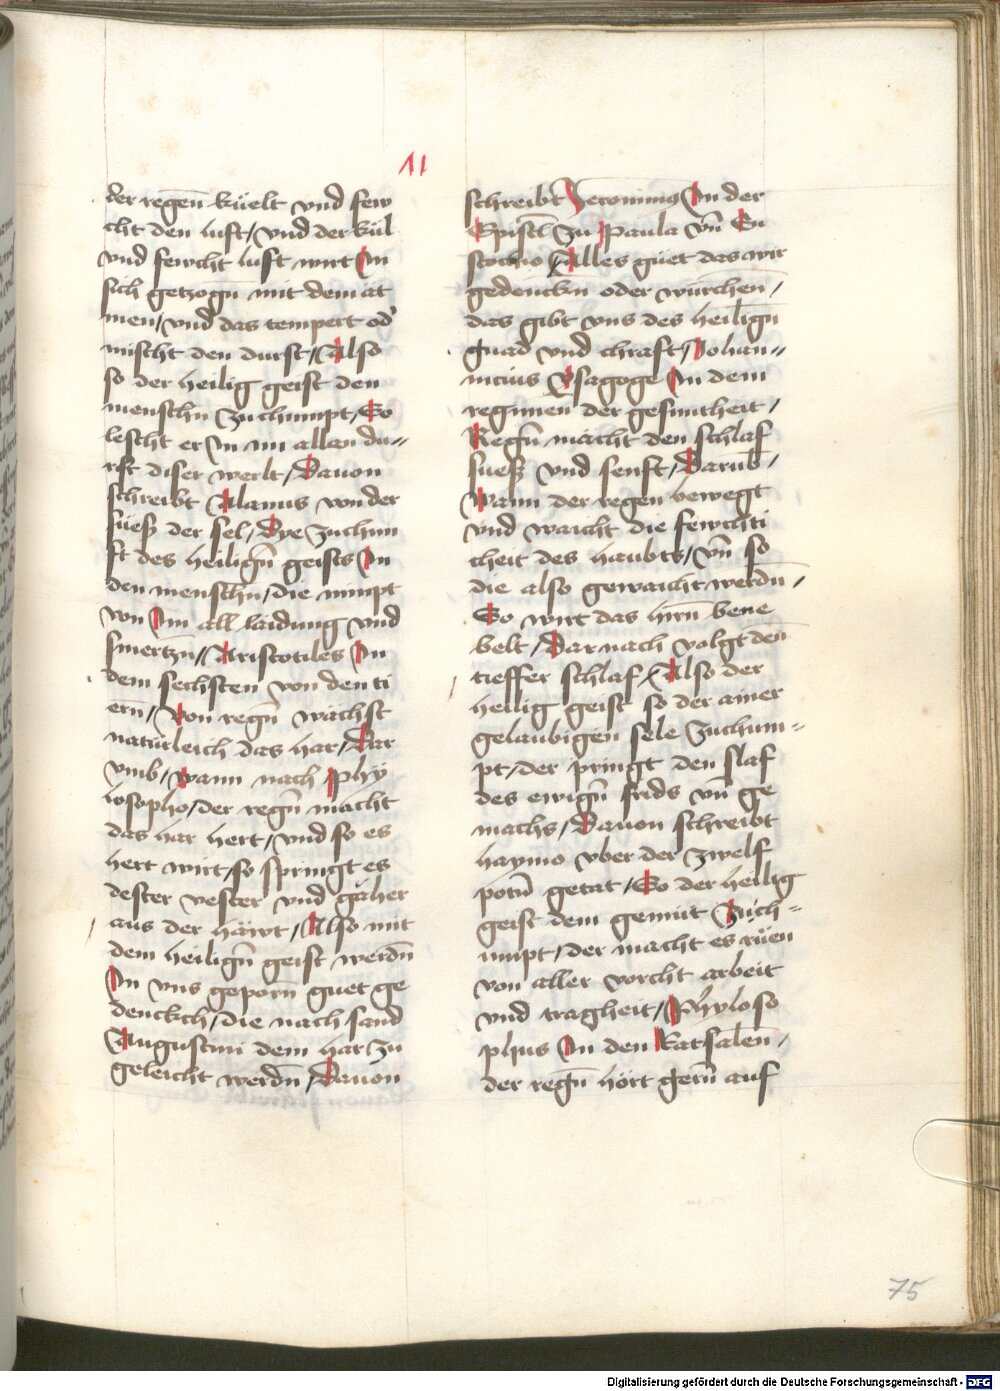 11
der regen̄ küelt vnd few
cht den luft / vnd der kül
vnd fewcht luft wirt In
sich getzogn̄ mit dem āt
men / vnd das tempert od'
mischt den durst / Also
so der heilig geist den
menschn̄ zuchumpt / So
lescht er In im allan du=
rst diser werlt / Dauon
schreibt Alanus von der
süess der sel / Dye zuchum
ft des heilign̄ geists In
den menschn̄ / die nimpt
von Im all laidung vnd
smertzn̄ / Aristotiles In
dem sechsten von den ti
ern̄ / Von regn̄ wächst
naturleich das har / Dar
vmb / wann nach phy
losopho / der regn̄ macht
das har hert / vnd so es
hert wirt / so springt es
dester vester vnd gäher
aus der häwt / Also mit
dem heilign̄ geist werdn̄
In vns geporn̄ guet ge
denckch / die nach sand
Augustini dem har zu
geleicht werdn̄ / Dauon
schreibt Jeronimus In der
Epistl̄ zu Paula vn̄ Eu
stochio / Alles güet das wir
gedenckn̄ oder würchen̄ /
das gibt vns des heilign̄
gnad vnd chraft / Johan=
nicius Ysagoge In dem
regimen der gesuntheit /
Regn̄ macht den schlaf
suess vnd senft / Darub̄ /
Wann der regen bewegt
vnd waicht die fewchti
cheit des haubts / vn̄ so
die also gewaicht werdn̄ /
So wirt das hirn̄ bene
belt / Dar nach volgt den̄
tieffer schlaf / Also der
heilig geist so der ainer
gelaubigen sele zuchum=
pt / der pringt den slaf
des ewign̄ frids vn̄ ge
machs / Dauon schreibt
haymo vber der zwelf
potn̄ getat / So der heilig
geist dem gemüt Zuch=
umpt / der macht es rüen
von aller vorcht arbeit
vnd tragheit / Phyloso
phus In den Ratsalen̄ /
der regn̄ hört gern̄ auf
75
Digitalisierung gefördert durch die Deutsche Forschungsgemeinschaft - DFG